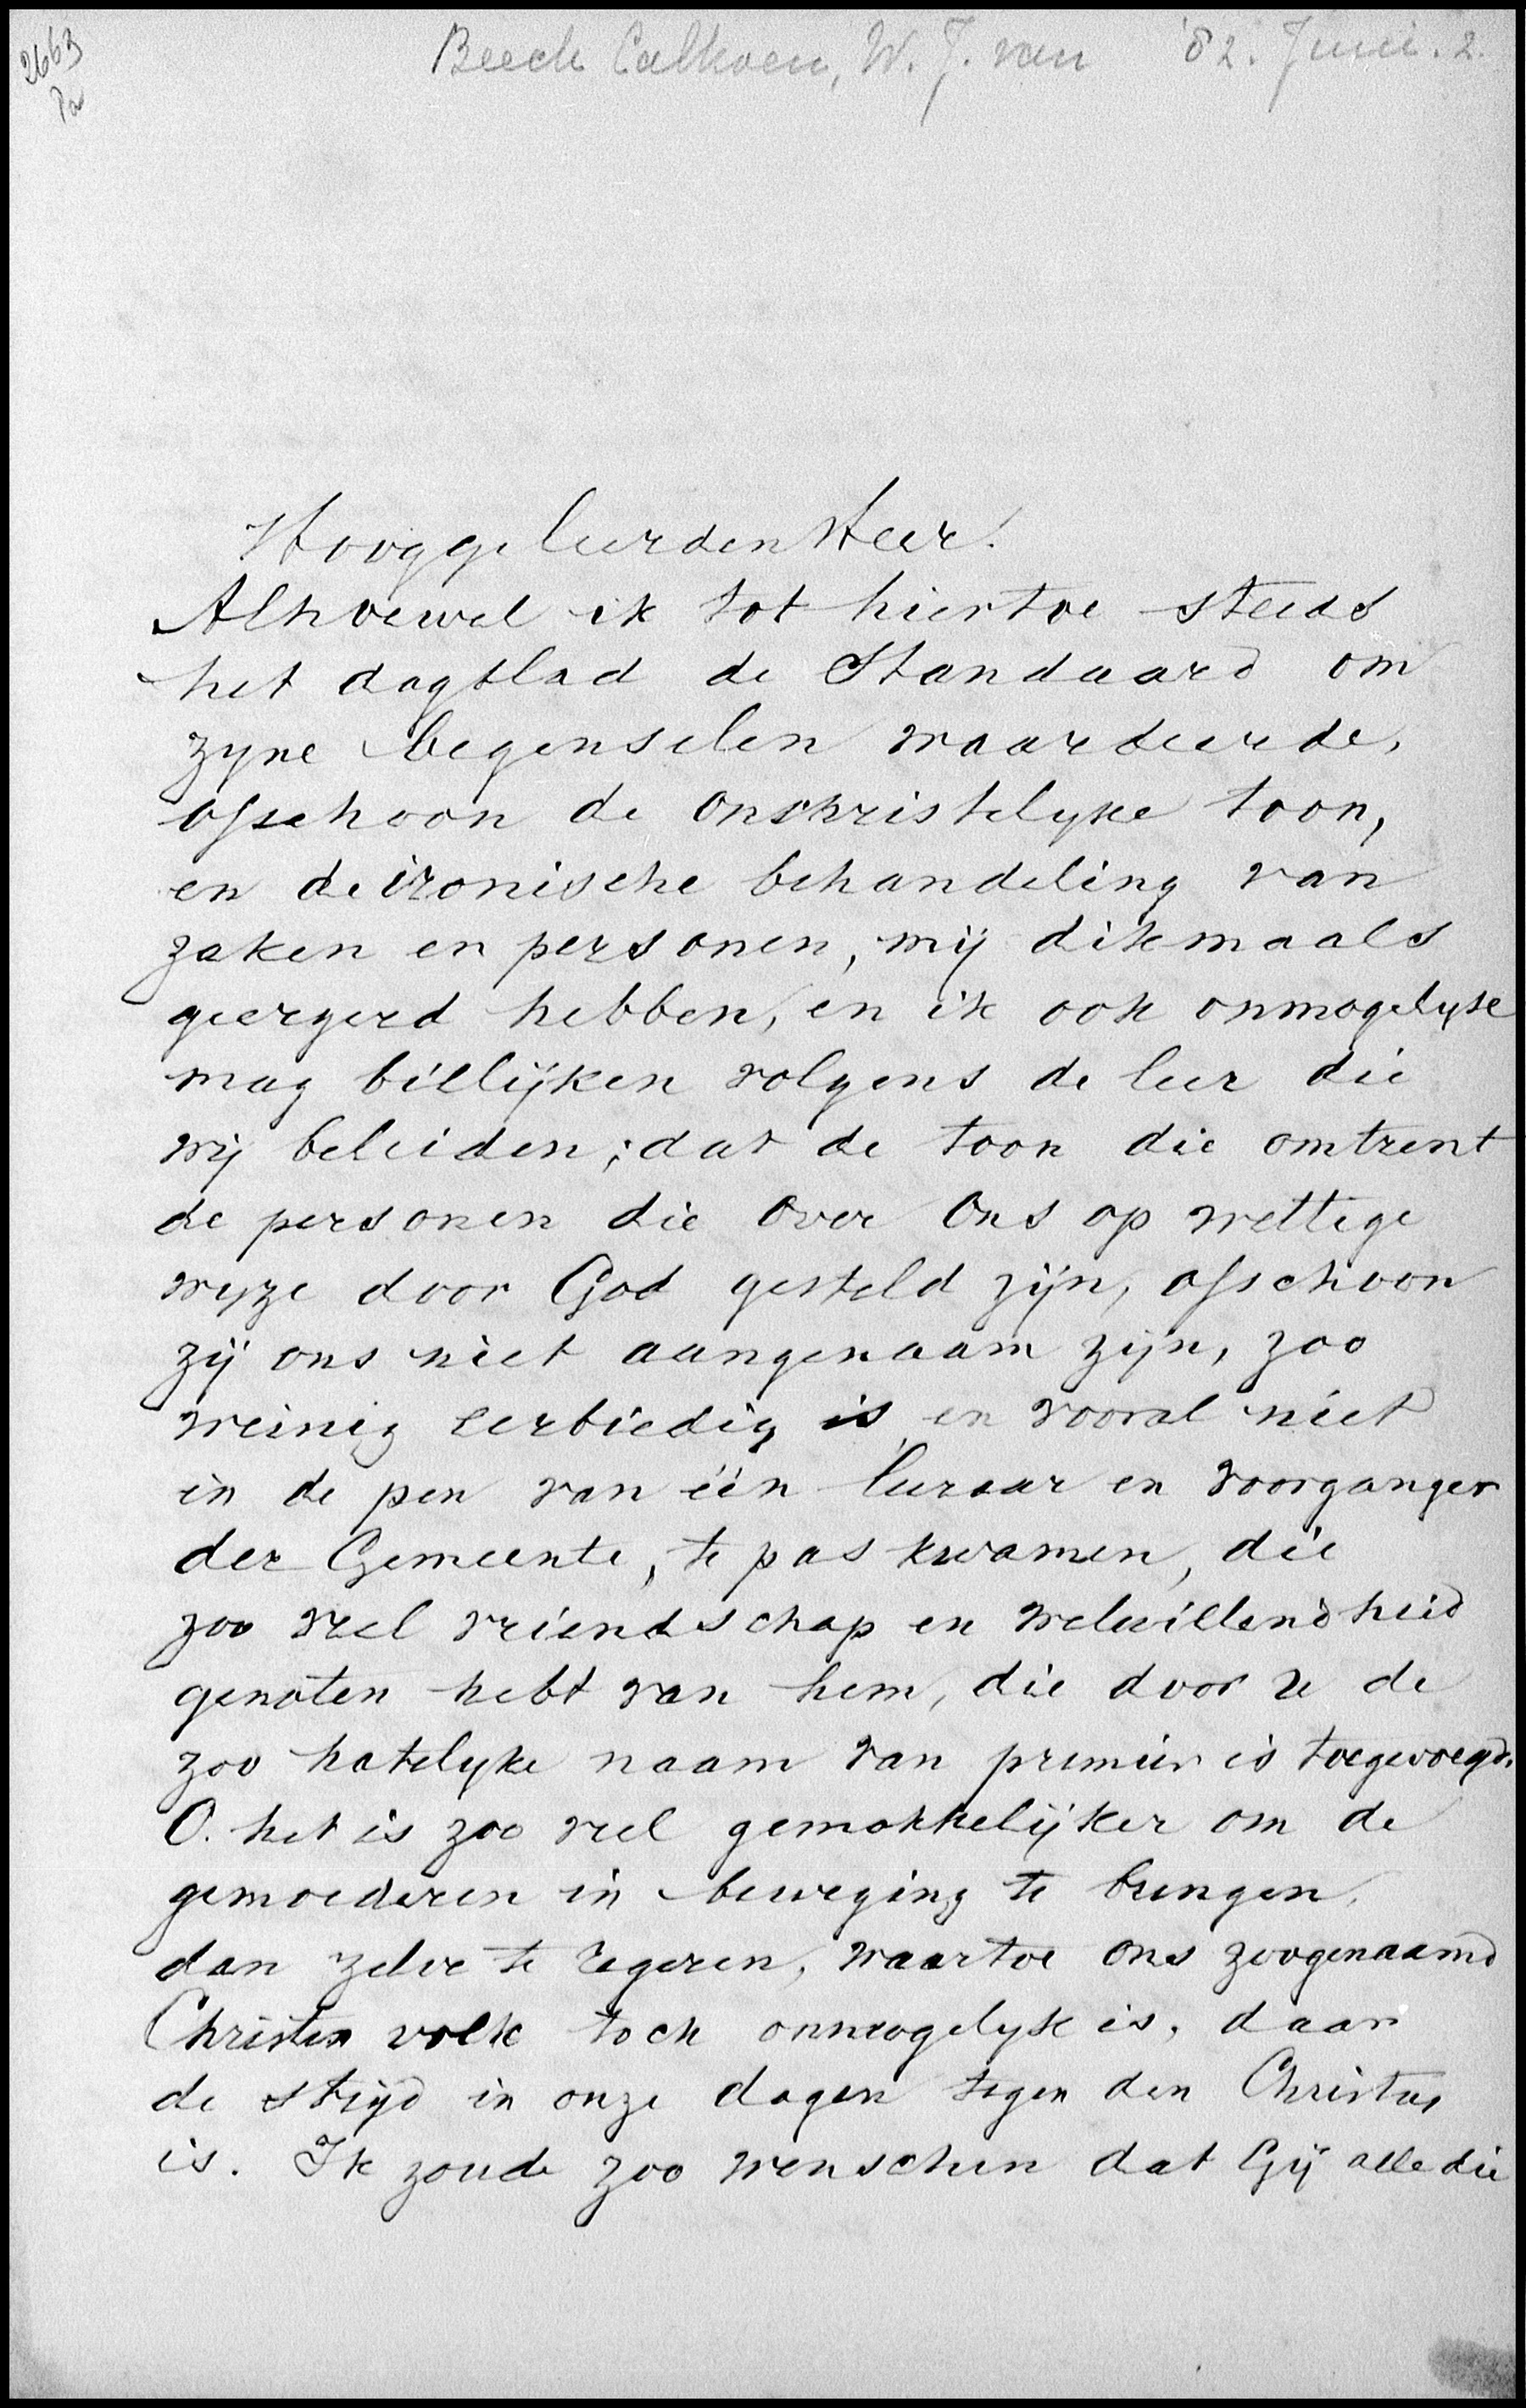 2663
Beeck Calkoen, W. J. van '82. Juni. 2.
Hooggeleerden Heer!
Alhoewel ik tot hiertoe steeds
het dagblad de Standaard om
zyne begenselen waardeerde,
ofschoon de onchristelyke toon,
en de ironische behandeling van
zaken en personen, mij dikmaals
geergerd hebben, en ik ook onmogelyk
mag billijken volgens de leer die
wij beleiden; dat de toon die omtrent
de personen die over ons op wettige
wyze door God gesteld zijn, ofschoon
zij ons niet aangenaam zijn, zoo
weinig eerbiedig is, en vooral niet
in de pen van één leeraar en voorganger
der Gemeente, te pas kwamen, die
zoo veel vriendschap en welwillendheid
genoten hebt van hem, die door u de
zoo hatelyke naam van premier is toegevoegd.
O. het is zoo veel gemakkelijker om de
gemoederen in beweging te brengen,
dan zelve te regeren, waartoe ons zoogenaamd
Christen volk toch onmogelyk is, daar
de strijd in onze dagen tegen den Christus
is. Ik zoude zoo wenschen dat Gij alle die